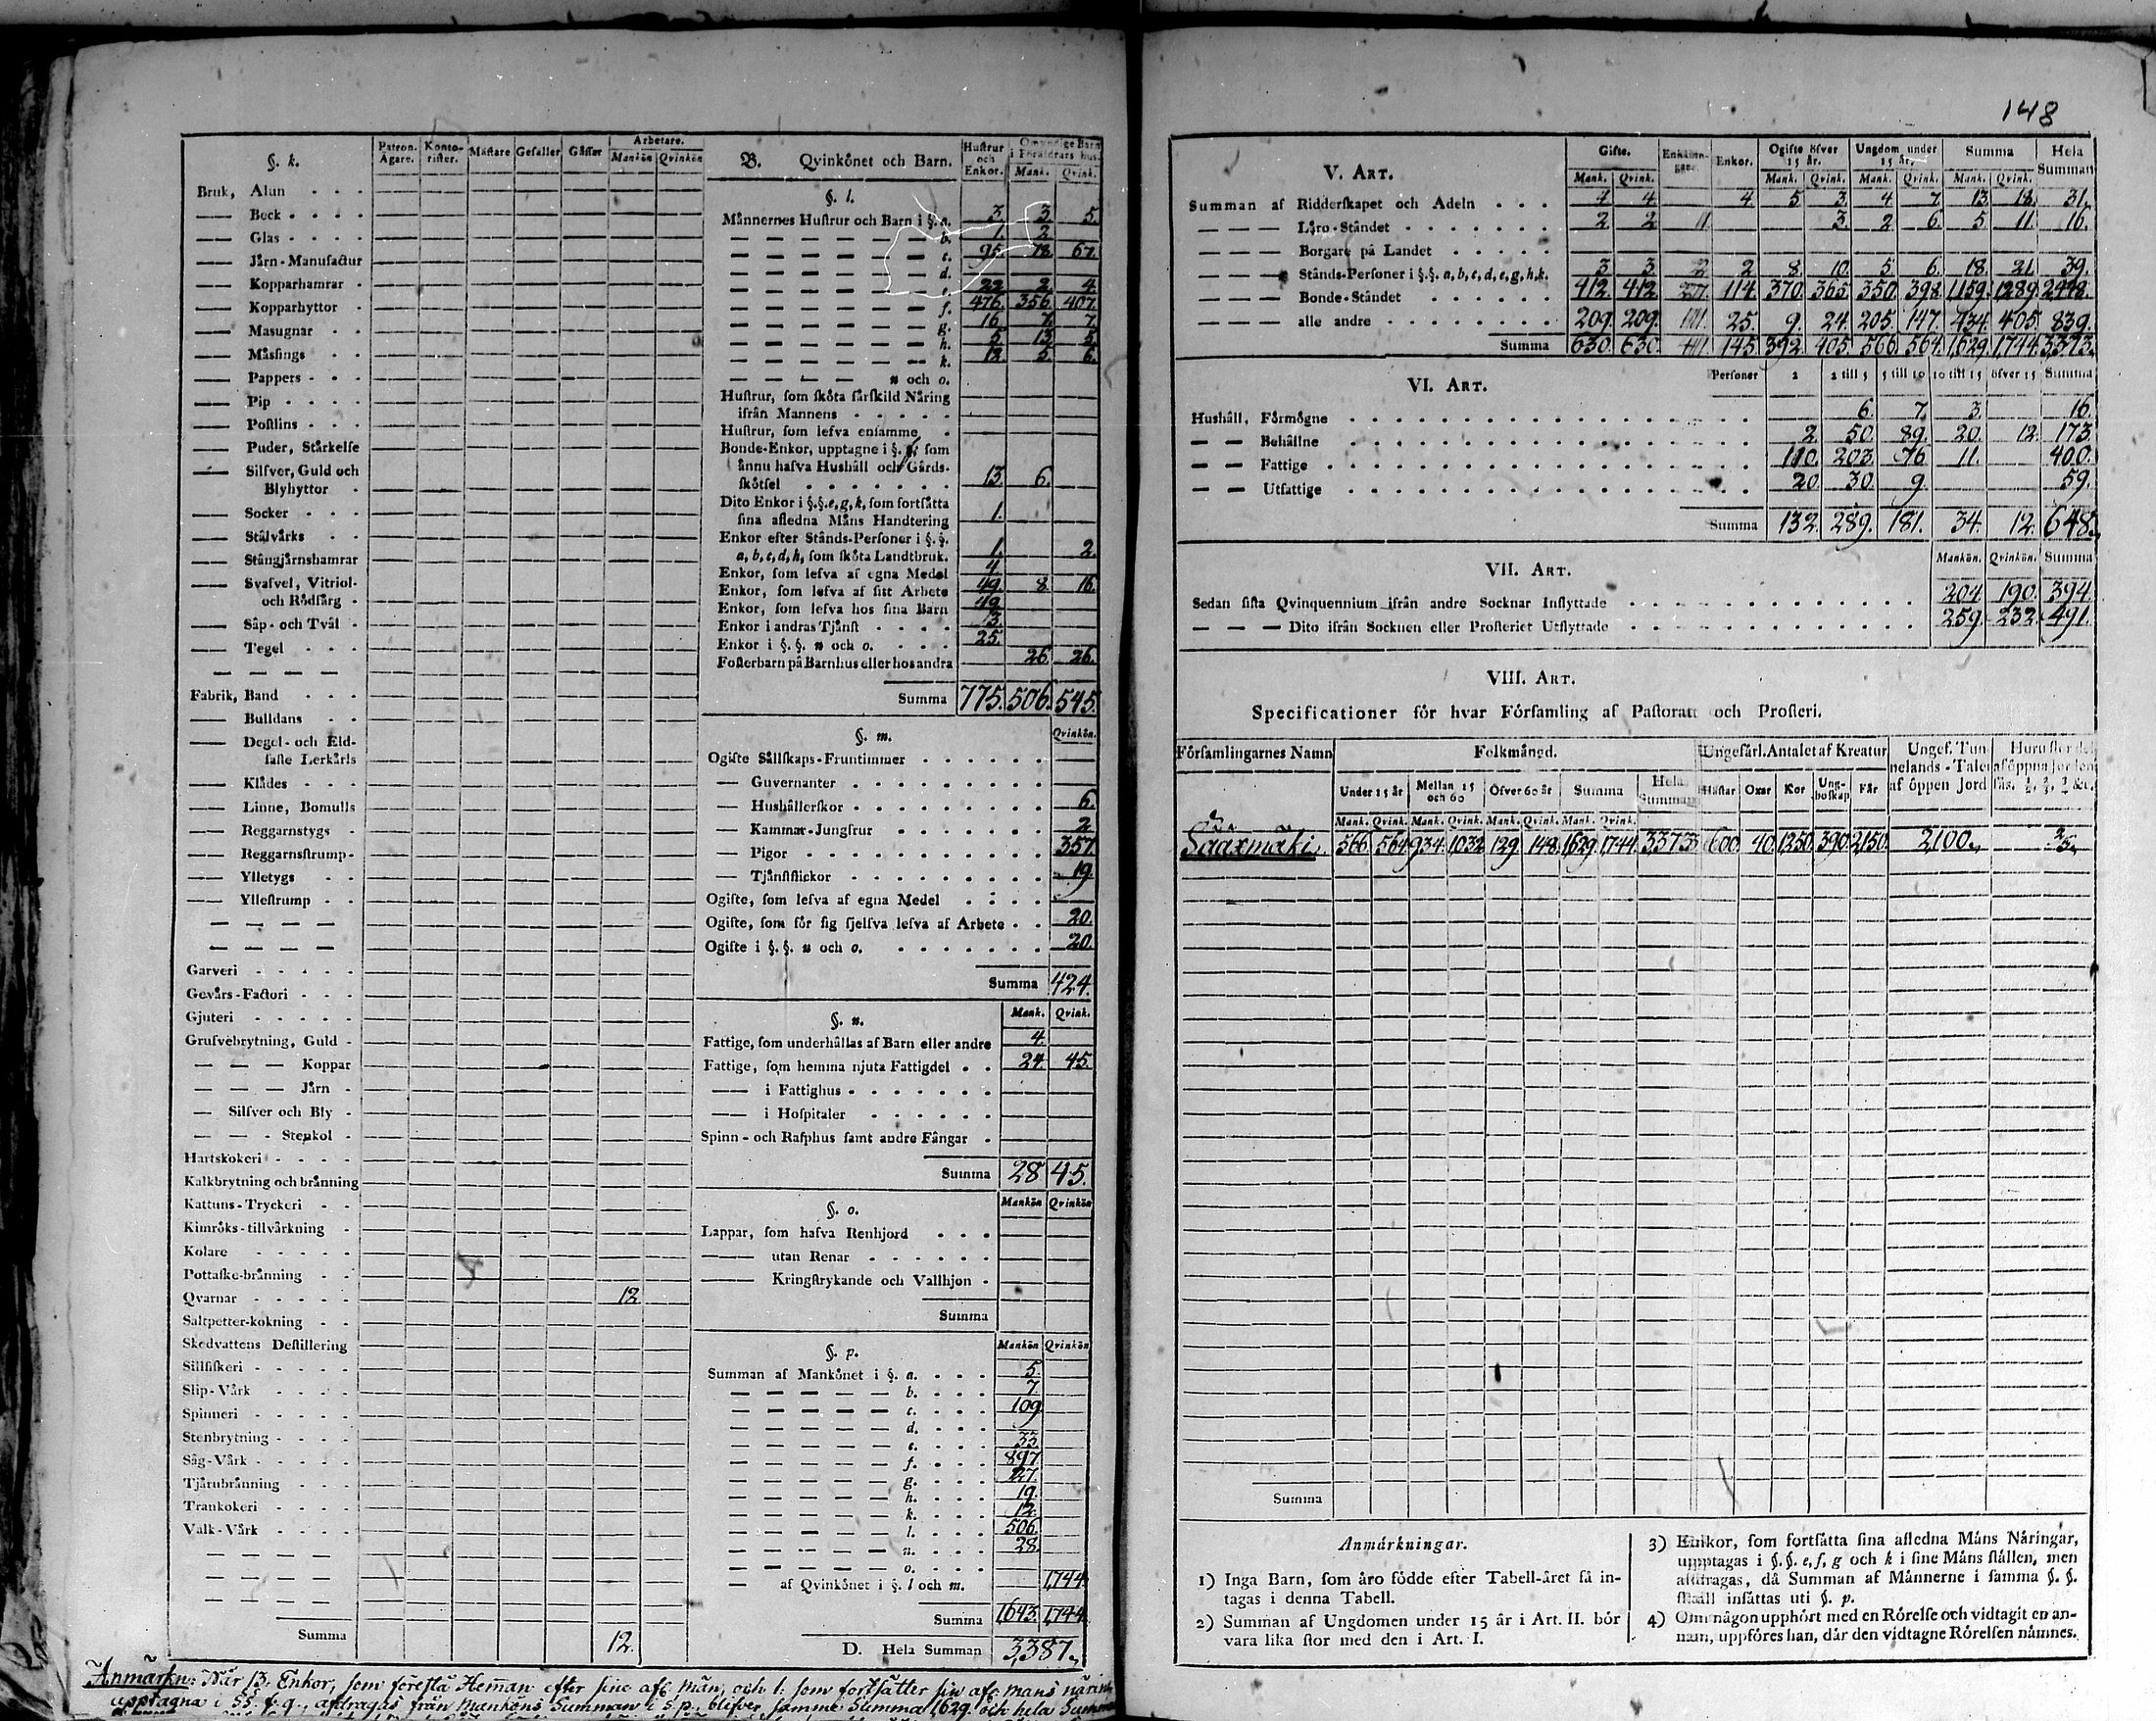 148
§. k. Patron. Ägare. Konto- rister. Mästare Gesäller Gåssar Arbetare. Mankön Qvinkön
Bruk, Alun
—— Beck
—— Glas
—— Järn-Manufactur
—— Kopparhamrar
—— Kopparhyttor
—— Masugnar
—— Mässings
—— Pappers
—— Pip
—— Postlins
—— Puder, Stärkelse
—— Silfver, Guld och
Blyhyttor
—— Socker
—— Stålvärks
—— Stångjärnshamrar
—— Svafvel, Vitriol-
och Rödfärg
—— Såp- och Tvål
—— Tegel
— — — —
Fabrik, Band
—— Bulldans
—— Degel- och Eld-
faste Lerkärls
—— Klädes
—— Linne, Bomulls
—— Reggarnstygs
—— Reggarnsstrump-
—— Ylletygs
—— Yllestrump
— — — —
— — — —
Garveri
Gevärs-Factori
Gjuteri
Grufvebrytning, Guld
— — — Koppar
— — — Järn
— Silfver och Bly
— — - Stenkol
Hartskokeri
Kalkbrytning och bränning
Kattuns-Tryckeri
Kimröks-tillvärkning
Kolare
Pottaske-bränning
Qvarnar 12
Saltpetter-kokning
Skedvattens Destillering
Sillfiskeri
Slip-Värk
Spinneri
Stenbrytning
Såg-Värk
Tjärubränning
Trankokeri
Valk-Värk
— — — —
— — — —
— — — —
Summa 12.
B. Qvinkönet och Barn. Hustrur och Enkor. Omyndige Barn i Föräldrars hus. Mank. Qvink.
§. l.
Männernes Hustrur och Barn i §. a. 3. 3. 5.
— — — — — — b. 1. 2.
— — — — — — c. 95. 78. 67.
— — — — — — d.
— — — — — — e. 22. 2. 4.
— — — — — — f. 476. 356. 407.
— — — — — — g. 16. 7. 7.
— — — — — — h. 5. 13. 5.
— — — — — — k. 12. 5. 6.
— — — — n och o.
Hustrur, som sköta särskild Näring
ifrån Mannens
Hustrur, som lefva ensamme
Bonde-Enkor, upptagne i §. f. som
ännu hafva Hushåll och Gårds-
skötsel 13. 6.
Dito Enkor i §.§. e, g, k, som fortsätta
sina afledna Mäns Handtering 1.
Enkor efter Stånds-Personer i §.§.
a, b, c, d, h, som sköta Landtbruk. 1. 2.
Enkor, som lefva af egna Medel 4.
Enkor, som lefva af sitt Arbete 49. 8. 16.
Enkor, som lefva hos sina Barn 49.
Enkor i andras Tjänst 3.
Enkor i §. §. n och o. 25.
Fosterbarn på Barnhus eller hos andra 26. 26.
Summa 775. 506. 545.
§. m. Qvinkön.
Ogifte Sällskaps-Fruntimmer
— Guvernanter
— Hushållerskor 6.
— Kammar-Jungfrur 2
— Pigor 357
— Tjänstflickor 19.
Ogifte, som lefva af egna Medel
Ogifte, som för sig sjelfva lefva af Arbete 20.
Ogifte i §. §. n och o. 20.
Summa 424.
§. n. Mank. Qvink.
Fattige, som underhållas af Barn eller andre 4.
Fattige, som hemma njuta Fattigdel 24. 45.
—— i Fattighus
—— i Hospitaler
Spinn- och Rasphus samt andre Fångar
Summa 28 45.
§. o. Mankön Qvinkön
Lappar, som hafva Renhjord
—— utan Renar
—— Kringstrykande och Vallhjon
Summa
§. p. Mankön Qvinkön
Summan af Mankönet i §. a. 5.
— — — — — b. 7.
— — — — — c. 109.
— — — — — d.
— — — — — e. 33.
— — — — — f. 897.
— — — — — g. 27.
— — — — — h. 19.
— — — — — k. 12.
— — — — — l. 506.
— — — — — n. 28.
— — — — — o.
— af Qvinkönet i §. l och m. 1,744.
Summa 1,643. 1,744.
D. Hela Summan 3,387.
Anmärkn: När 13. Enkor, som förestå Hemman efter sine afl. Män, och 1. som fortsätter sin afl. mans närin
upptagna i §§. f. g., afdragas från mankönets Summan i §. p. blifver samme Summa 1,629. och hela Summa
V. Art. Gifte. Mank. Qvink. Enkor. Ogifte öfver 15 år. Mank. Qvink. Ungdom under 15 år. Mank. Qvink. Summa Mank. Qvink. Hela Summan
Summan af Ridderskapet och Adeln 4 4 4 5 3. 4 7. 13 18. 31.
— — — Läro-Ståndet 2 2 3. 2 6. 5 11. 16.
— — — Borgare på Landet
— — — Stånds-Personer i §.§. a, b, c, d, e, g, h, k. 3 3 2 2 8. 10. 5 6. 18. 21. 39.
— — — Bonde-Ståndet 412. 412. 114. 370. 365. 350. 398. 1159. 1289. 2448.
— — — alle andre 209. 209. 25. 9. 24. 205. 147. 434. 405. 839.
Summa 630. 630. 145. 392. 405. 566. 564. 1,629. 1,744. 3,373.
VI. Art. Personer 2 2 till 5 5 till 10 10 till 15 öfver 15 Summa
Hushåll, Förmögne 6. 7. 3. 16.
— — Behållne 2. 50. 89. 20. 12. 173.
— — Fattige 110. 203. 76 11. 400.
— — Utfattige 20. 30. 9. 59.
Summa 132. 289. 181. 34. 12. 648.
VII. Art. Mankön. Qvinkön. Summa
Sedan sista Qvinquennium ifrån andre Socknar Inflyttade 204 190. 394.
— — — Dito ifrån Socknen eller Prosteriet Utflyttade 259. 232. 491.
VIII. Art.
Specificationer för hvar Församling af Pastoratt och Prosteri.
Församlingarnes Namn Folkmängd. Ungefärl. Antalet af Kreatur Ungef. Tun nelands-Talet af öppen Jord
Under 15 år Mellan 15 och 60 Öfver 60 år Summa Hela Summan Hästar Oxar Kor Ung-boskap Får
Mank. Qvink. Mank. Qvink. Mank. Qvink. Mank. Qvink.
Sääxmäki. 566. 564. 934. 1,032. 129. 148. 1,629. 1,744. 3,373. 600. 40. 1,250. 390. 2,150. 2,100.
Summa
Anmärkningar.
1) Inga Barn, som äro födde efter Tabell-året få in-
tagas i denna Tabell.
2) Summan af Ungdomen under 15 år i Art. II. bör
vara lika stor med den i Art. I.
3) Enkor, som fortsätta sina afledna Mäns Näringar,
upptagas i §.§. e, f, g och k i sine Mäns ställen, men
afdragas, då Summan af Männerne i samma §. §.
skall insättas uti §. p.
4) Om någon upphört med en Rörelse och vidtagit en an-
nan, uppföres han, där den vidtagne Rörelsen nämnes.